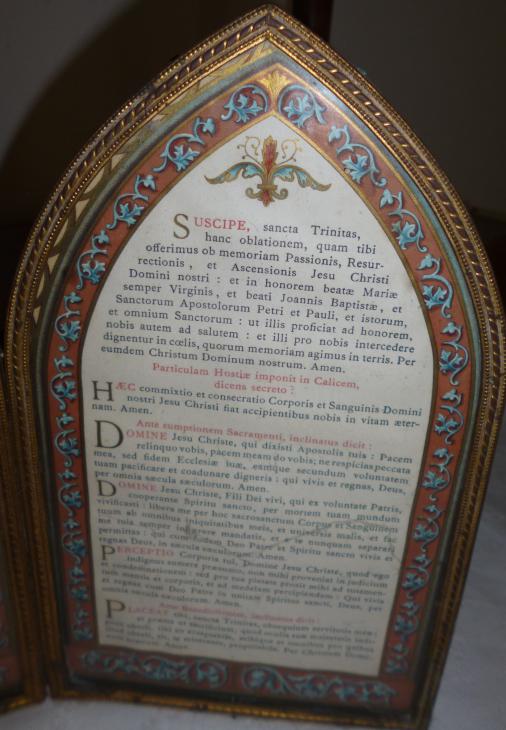 SUSCIPE, sancta Trinitas,
hanc oblationem, quam tibi
offerimus ob memoriam Passionis, Resur-
rectionis, et Ascensionis Jesu Christi
Domini nostri : et in honorem beatæ Mariæ
semper Virginis, et beati Joannis Baptistæ, et
Sanctorum Apostolorum Petri et Pauli, et istorum,
et omnium Sanctorum : ut illis proficiat ad honorem,
nobis autem ad salutem : et illi pro nobis intercedere
dignentur in cœlis, quorum memoriam agimus in terris. Per
eumdem Christum Dominum nostrum. Amen.
Particulam Hostiæ imponit in Calicem,
dicens secreto :
HÆC commixtio et consecratio Corporis et Sanguinis Domini
nostri Jesu Christi fiat accipientibus nobis in vitam æter-
nam. Amen.
Ante sumptionem Sacramenti, inclinatus dicit :
DOMINE Jesu Christe, qui dixisti Apostolis tuis : Pacem
relinquo vobis, pacem meam do vobis; ne respicias peccata
mea, sed fidem Ecclesiæ tuæ, eamque secundum voluntatem
tuam pacificare et coadunare digneris : qui vivis et regnas, Deus,
per omnia sæcula sæculorum. Amen.
DOMINE Jesu Christe, Fili Dei vivi, qui ex voluntate Patris,
cooperante Spiritu sancto, per mortem tuam mundum
vivificasti : libera me per hoc sacrosanctum Corpus et Sanguinem
tuum ab omnibus iniquitatibus meis, et universis malis, et fac
me tuis semper inhærere mandatis, et a te nunquam separari
permittas : qui cum eodem Deo Patre et Spiritu sancto vivis et
regnas Deus, in sæcula sæculorum. Amen.
PERCEPTIO Corporis tui, Domine Jesu Christe, quod ego
indignus sumere præsumo, non mihi proveniat in judicium
et condemnationem : sed pro tua pietate prosit mihi ad tutamen-
tum mentis et corporis, et ad medelam percipiendam : Qui vivis
et regnas cum Deo Patre in unitate Spiritus sancti, Deus, per
omnia sæcula sæculorum. Amen.
Ante Benedictionem, inclinatus dicit :
PLACEAT tibi, sancta Trinitas, obsequium servitutis meæ :
et præsta ut sacrificium, quod oculis tuæ majestatis indi-
gnus obtuli, tibi sit acceptabile, mihique et omnibus pro quibus
illud obtuli, sit, te miserante, propitiabile. Per Christum Domi-
num nostrum. Amen.